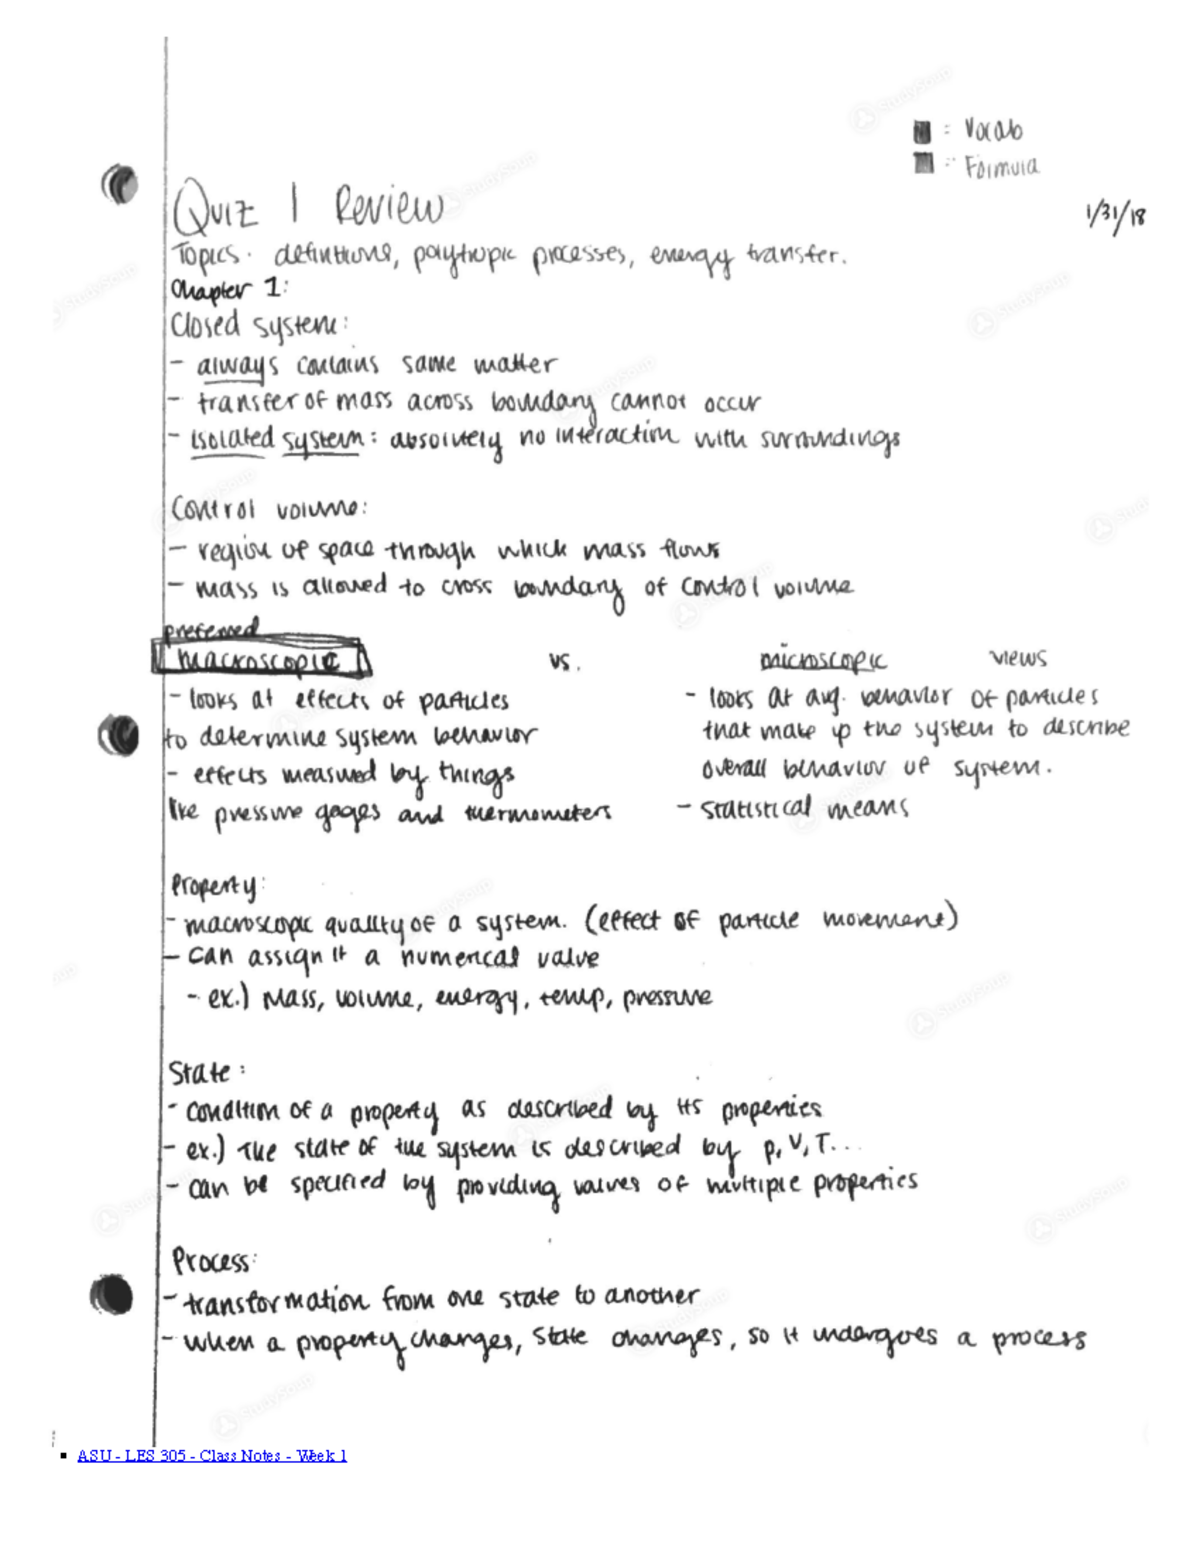 : Vocab
: Formula
Quiz 1 Review
1/31/18
Topics: definitions, polytropic processes, energy transfer.
Chapter 1:
Closed system:
- always contains same matter
- transfer of mass across boundary cannot occur
- isolated system: absolutely no interaction with surroundings
Control volume:
- region of space through which mass flows
- mass is allowed to cross boundary of control volume
preferred
macroscopic vs. microscopic views
- looks at effects of particles
to determine system behavior
- effects measured by things
like pressure gages and thermometers
- looks at avg. behavior of particles
that make up the system to describe
overall behavior of system.
- statistical means
Property:
- macroscopic quality of a system. (effect of particle movement)
- can assign it a numerical value
- ex.) Mass, volume, energy, temp, pressure
State:
- condition of a property as described by its properties
- ex.) The state of the system is described by p, V, T...
- can be specified by providing values of multiple properties
Process:
- transformation from one state to another
- when a property changes, state changes, so it undergoes a process
ASU - LES 305 - Class Notes - Week 1
StudySoup